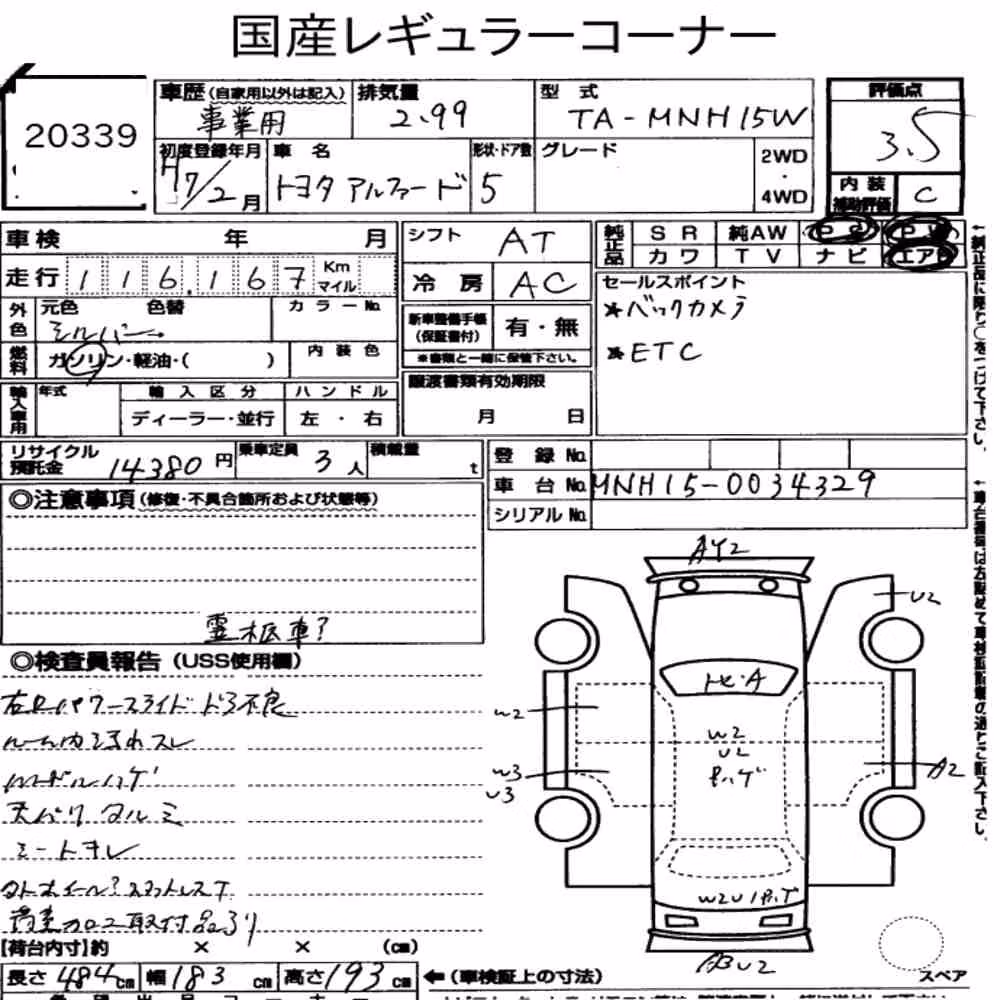 国産レギュラーコーナー
20339
車歴(自家用以外は記入) 排気量 型式 評価点
事業用 2.99 TA-MNH15W 3.5
初度登録年月 車名 形状・ドア数 グレード 2WD・4WD
H17/2月 トヨタ アルファード 5
内装補助評価 C
車検 年 月
シフト AT
純正品 SR 純AW PS PW
カワ TV ナビ エアB
走行 116,167 Km マイル
冷房 AC
セールスポイント
*バックカメラ
*ETC
外色 元色 色替 カラーNo
シルバー
新車整備手帳(保証書付) 有・無
※書類と一緒に保管下さい。
燃料 ガソリン・軽油・( ) 内装色
輸入車用 年式 輸入区分 ハンドル
ディーラー・並行 左・右
譲渡書類有効期限
月 日
リサイクル預託金 14380円 乗車定員 3人 積載量 t
登録No
車台No MNH15-0034329
シリアルNo
◎注意事項(修復・不具合箇所および状態等)
霊柩車?
◎検査員報告(USS使用欄)
右Rパワースライドドア不良
ルーム内汚れスレ
Mモールハゲ
天バリタルミ
シートキレ
架装加工取付品あり
AY2
U2
トビ・A
W2
W2
U2
W3
U3
A2
【荷台内寸】約 × × (cm)
長さ 484cm 幅 183cm 高さ 193cm ←(車検証上の寸法)
スペア